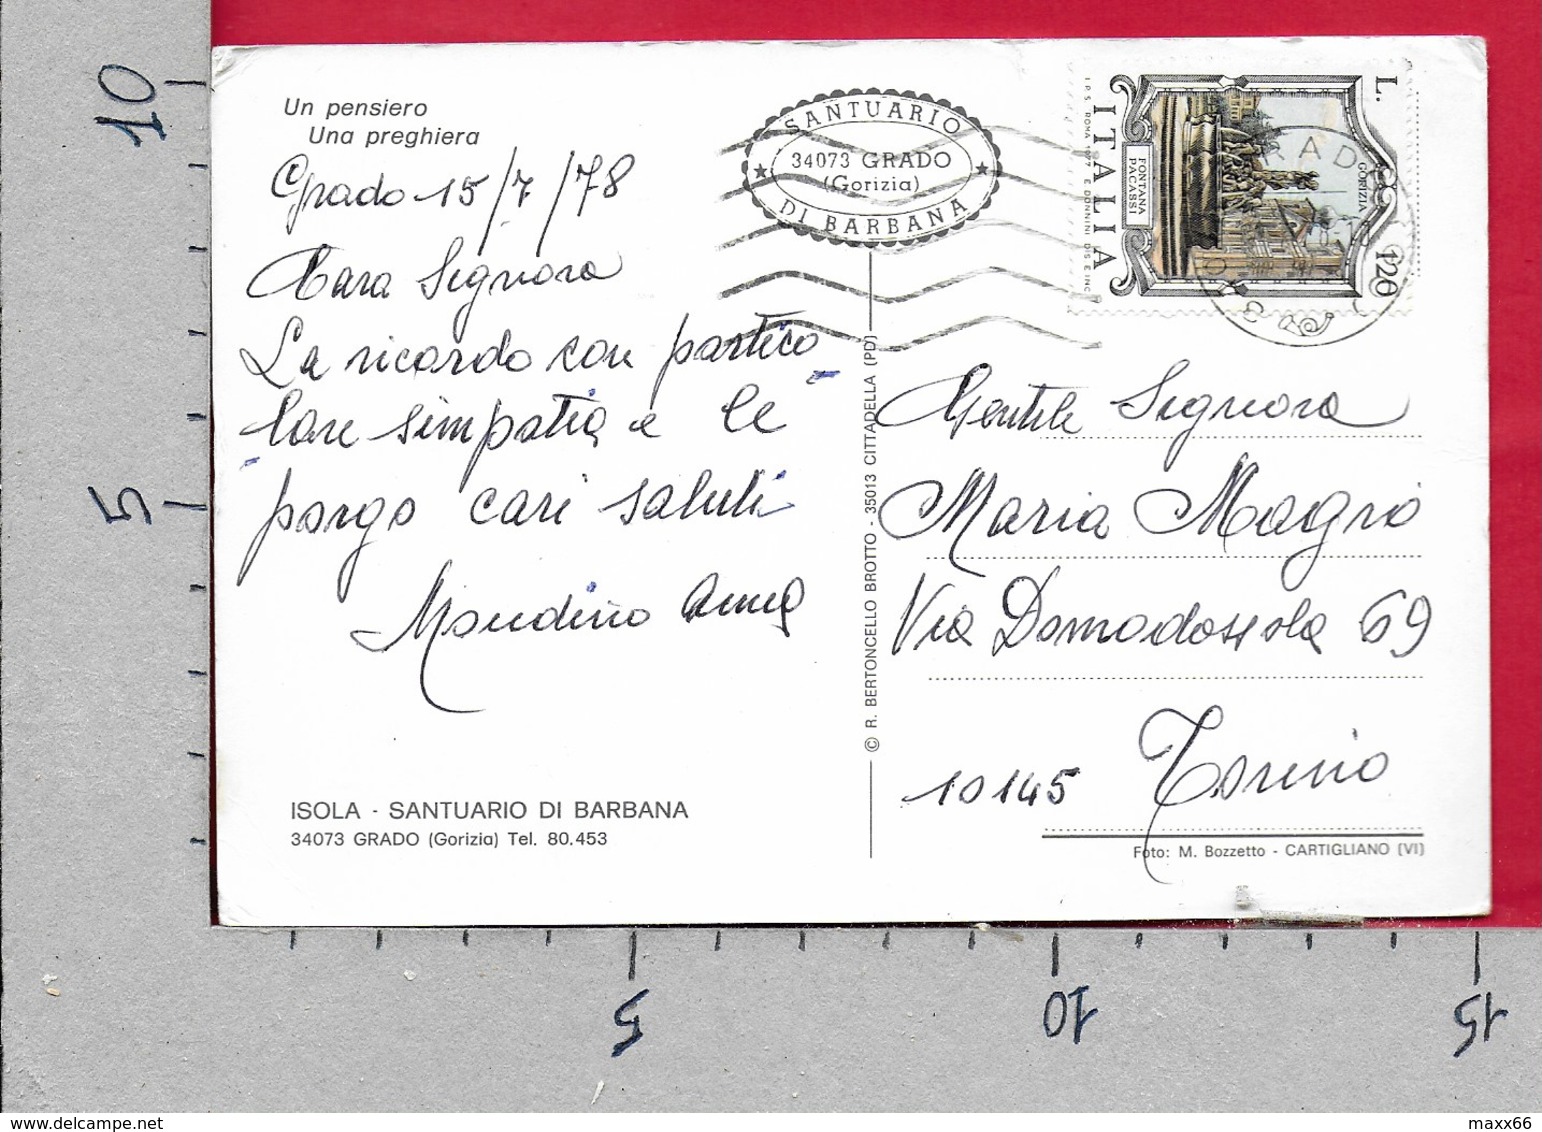 10
5
Un pensiero
Una preghiera
Grado 15/7/78
Cara Signora
La ricordo con partico
lare simpatia e le
porgo cari saluti
Mondino Anna
ISOLA - SANTUARIO DI BARBANA
34073 GRADO (Gorizia) Tel. 80.453
SANTUARIO
34073 GRADO
(Gorizia)
DI BARBANA
© R. BERTONCELLO BROTTO - 35013 CITTADELLA (PD)
I.P.S. ROMA 1977 E. DONNINI DIS. E INC.
ITALIA
FONTANA
PACASSI
GORIZIA
L. 120
Gentile Signora
Maria Magrò
Via Domodossola 69
10145 Torino
Foto: M. Bozzetto - CARTIGLIANO (VI)
5
10
15
www.delcampe.net
maxx66